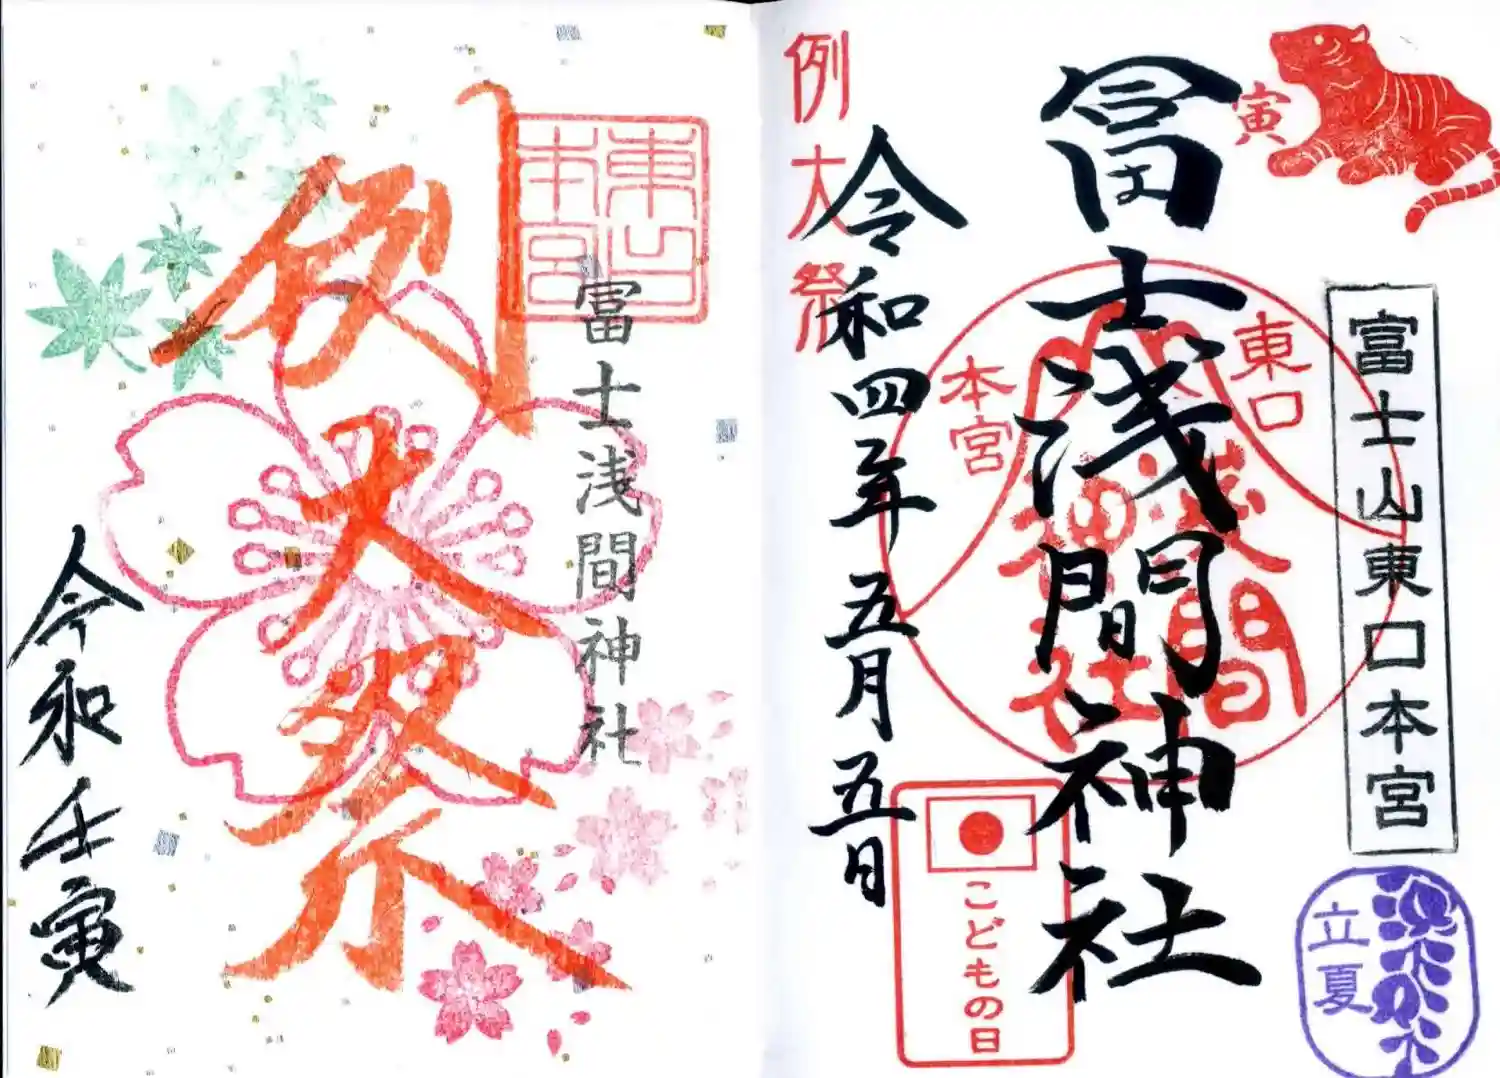 寅
富士山東口本宮
冨士浅間神社
東口
本宮
浅間
神社
例大祭
令和四年五月五日
こどもの日
立夏
東口
本宮
冨士浅間神社
例大祭
令和壬寅